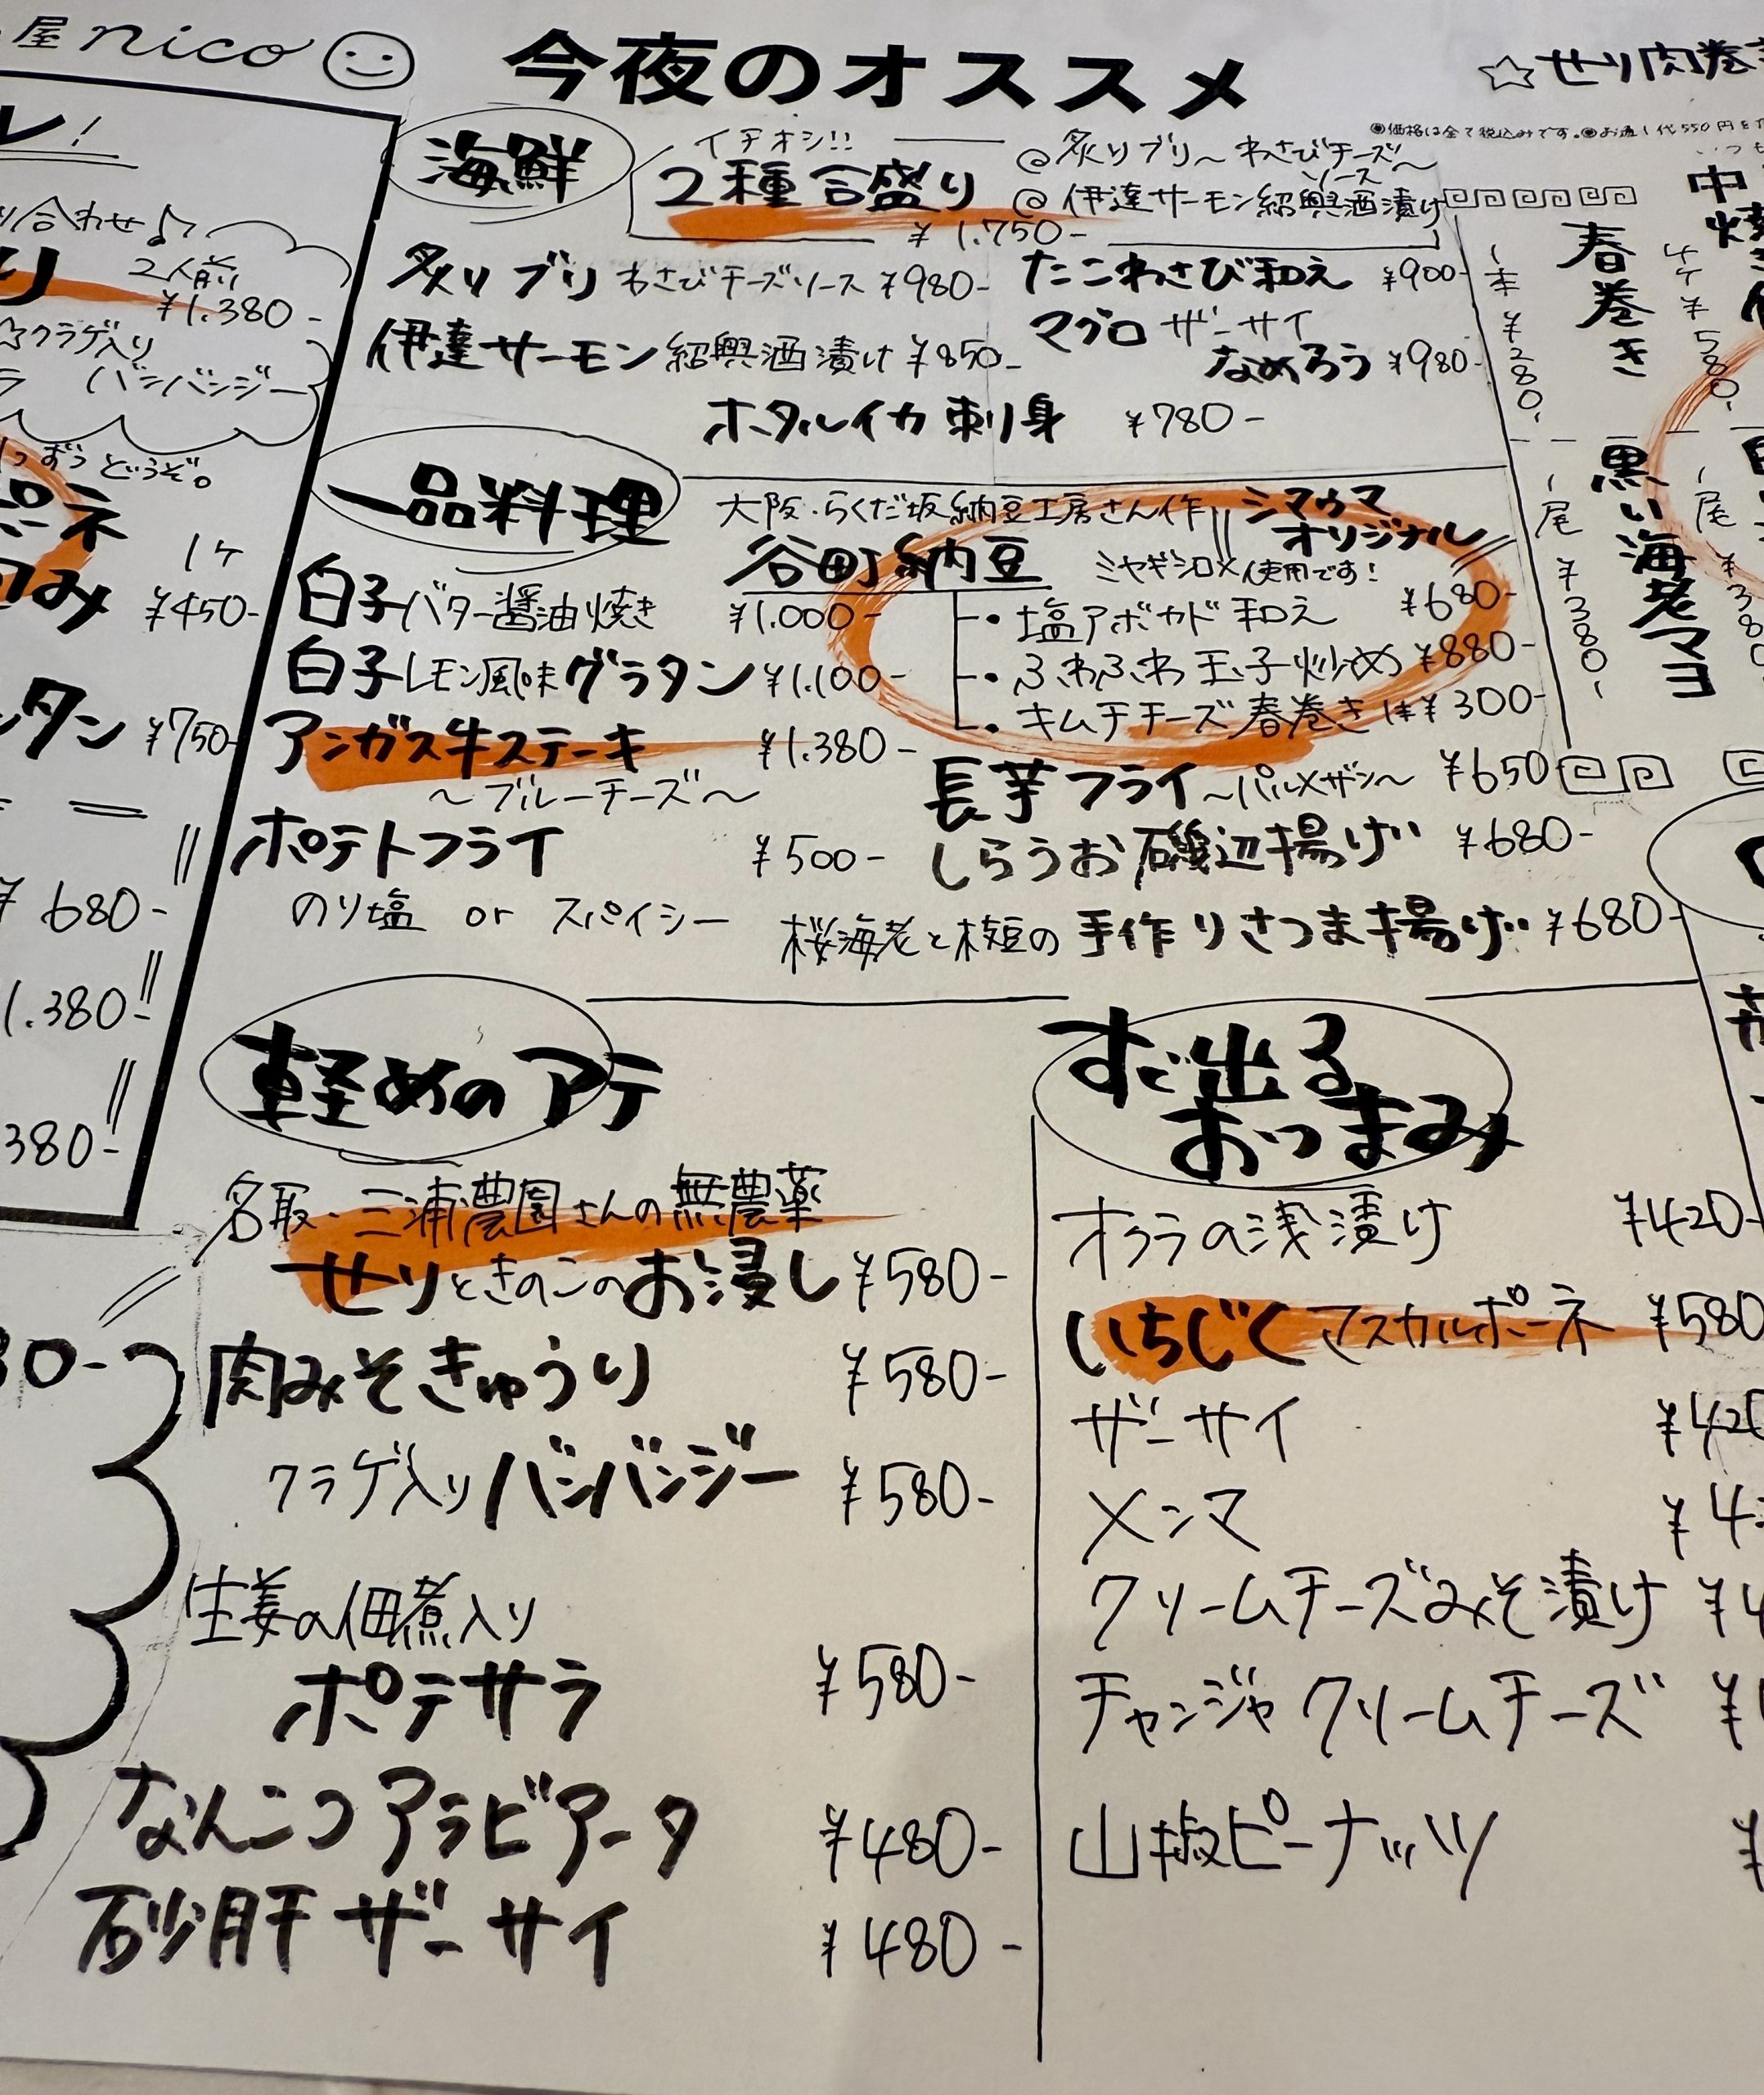 屋 nico
今夜のオススメ
☆せり肉巻
◉価格は全て税込みです。◉お通し代550円を
海鮮
イチオシ!!
2種合盛り
@炙りブリ〜わさびチーズソース〜
@伊達サーモン紹興酒漬け
¥1.750-
炙りブリ わさびチーズソース ¥980-
たこわさび和え ¥900-
伊達サーモン紹興酒漬け ¥850-
マグロザーサイ
なめろう ¥980-
ホタルイカ刺身 ¥780-
一品料理
白子バター醤油焼き ¥1.000-
白子レモン風味グラタン ¥1.100-
アンガス牛ステーキ ¥1.380-
〜ブルーチーズ〜
ポテトフライ ¥500-
のり塩 or スパイシー
大阪・らくだ坂納豆工房さん作
シマウマ
オリジナル
谷町納豆 ミヤギシロメ使用です!
・塩アボカド和え ¥680-
・ふわふわ玉子炒め ¥880-
・キムチチーズ春巻き 1本¥300-
長芋フライ〜パルメザン〜 ¥650
しらうお磯辺揚げ ¥680-
桜海老と枝豆の手作りさつま揚げ ¥680-
軽めのアテ
名取・三浦農園さんの無農薬
せりときのこのお浸し ¥580-
肉みそきゅうり ¥580-
クラゲ入りバンバンジー ¥580-
生姜の佃煮入り
ポテサラ ¥580-
なんこつアラビアータ ¥480-
砂肝ザーサイ ¥480-
すぐ出る
おつまみ
オクラの浅漬け ¥420-
いちじくマスカルポーネ ¥580
ザーサイ ¥420
メンマ ¥4
クリームチーズみそ漬け ¥4
チャンジャクリームチーズ ¥
山椒ピーナッツ ¥
春巻き
1本¥280-
4ケ¥580-
黒い海老マヨ
1尾¥380-
1尾¥380
レ!
り合わせ♪
り 2人前
¥1.380-
☆クラゲ入り
バンバンジー
ずつどうぞ。
ポネ
1ケ
つみ ¥450-
タン ¥750-
¥680-
1.380-
380-
80-